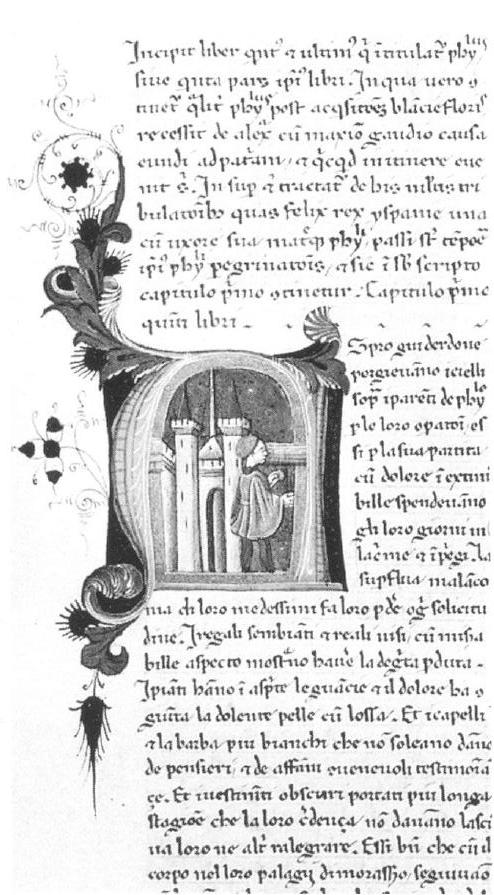 Incipit liber qnt' ⁊ ultim' q̄ ītitulat' phy^lus
siue qnta pars ip̄i libri. In qua uero 9
tinet' qlit' phy^lus post acqsitōēz blācie floris
recessit de alex̄ cū maxīo gaudio causa
eundi ad patrā3, ⁊ qcqd in itinere eue
nit ẜ. In sup ⁊ tractat' de his m̄ltis tri
bulatōībꝰ quas felix rex yspanie una
cū uxore sua mat'q phy^li passi st̄ tēpoē
ip̄i phy^li pegrinatōis, ⁊ sic ī s̄b scripto
capitulo p̄mo 9tinetur. Capitulo p̄mo
quiti libri.
ASpro guiderdone
porgieuāno icielli
sop̄ iparēti de phy^lo
p le loro opatōi, essi
p la sua partita
cū dolore īextimabille
spendeuāno
gli loro giorni in
lac̄me ⁊ īp̄egi. La
supflua malāco
nia di loro medessimi fa loro pd'e oḡ solicitu
dine. I regali sembiāti ⁊ reali uisi, cū misa
bille aspecto most'no hau'e la deḡta pduta.
I piāti hāno ī asp̄te le guācie ⁊ il dolore ha 9
giūta la dolente pelle cū lossa. Et i capelli
⁊ la barba piu bianchi che nō soleano dāno
de pensieri, ⁊ de affāni eueneuoli testimoīā
çe. Et i uestimēti obscuri portati piu longa
stagiōe che la loro c̄deuça nō dauāno lasci
ua loro ne alt' ralegrare. Essi bn̄ che cū il
corpo nel loro palagij dimorass̄o, seguiuāo